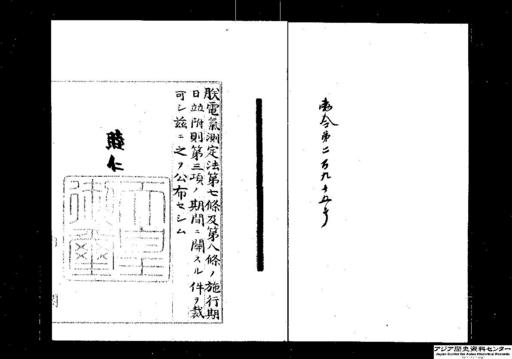 勅令第二百九十五号
朕電氣測定法第七條及第八條ノ施行期
日竝附則第三項ノ期間ニ關スル件ヲ裁
可シ茲ニ之ヲ公布セシム
睦仁
天皇
御璽
アジア歴史資料センター
Japan Center for Asian Historical Records